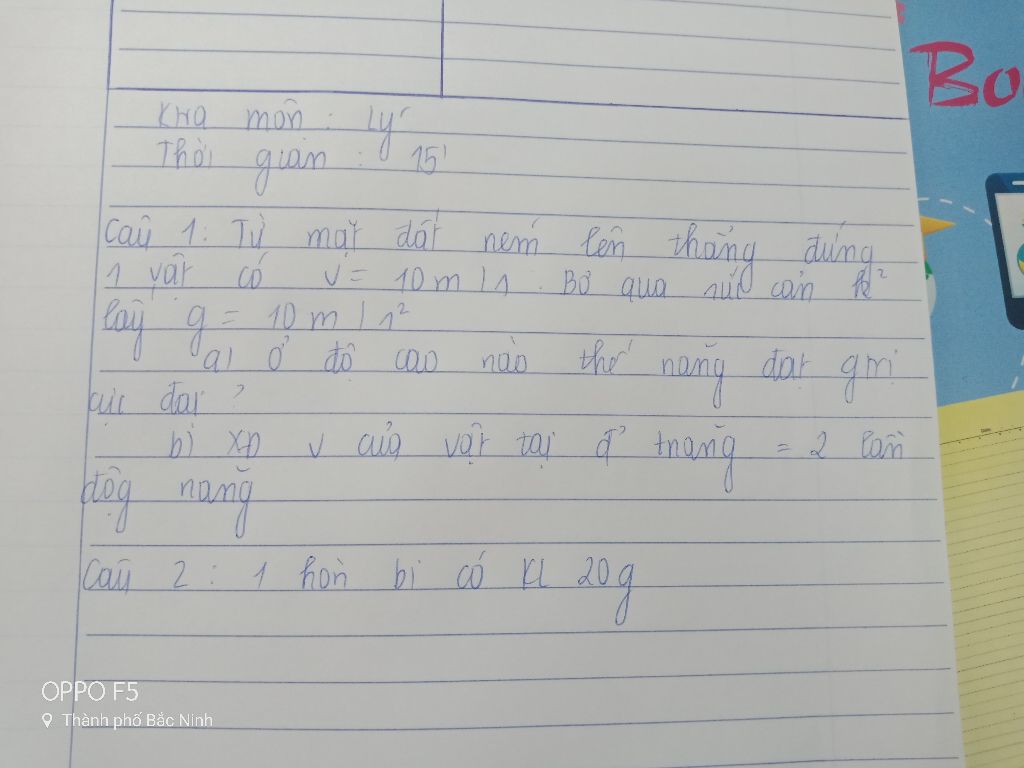 Bo
Ktra môn : Lý
Thời gian : 15'
Câu 1: Từ mặt đất ném lên thẳng đứng
1 vật có v = 10 m/s. Bỏ qua sức cản k²
lấy g = 10 m/s²
a) ở độ cao nào thế năng đạt gtrị
cực đại ?
b) XĐ v của vật tại đ' tnăng = 2 lần
độg năng
Câu 2 : 1 hòn bi có KL 20g
OPPO F5
Thành phố Bắc Ninh